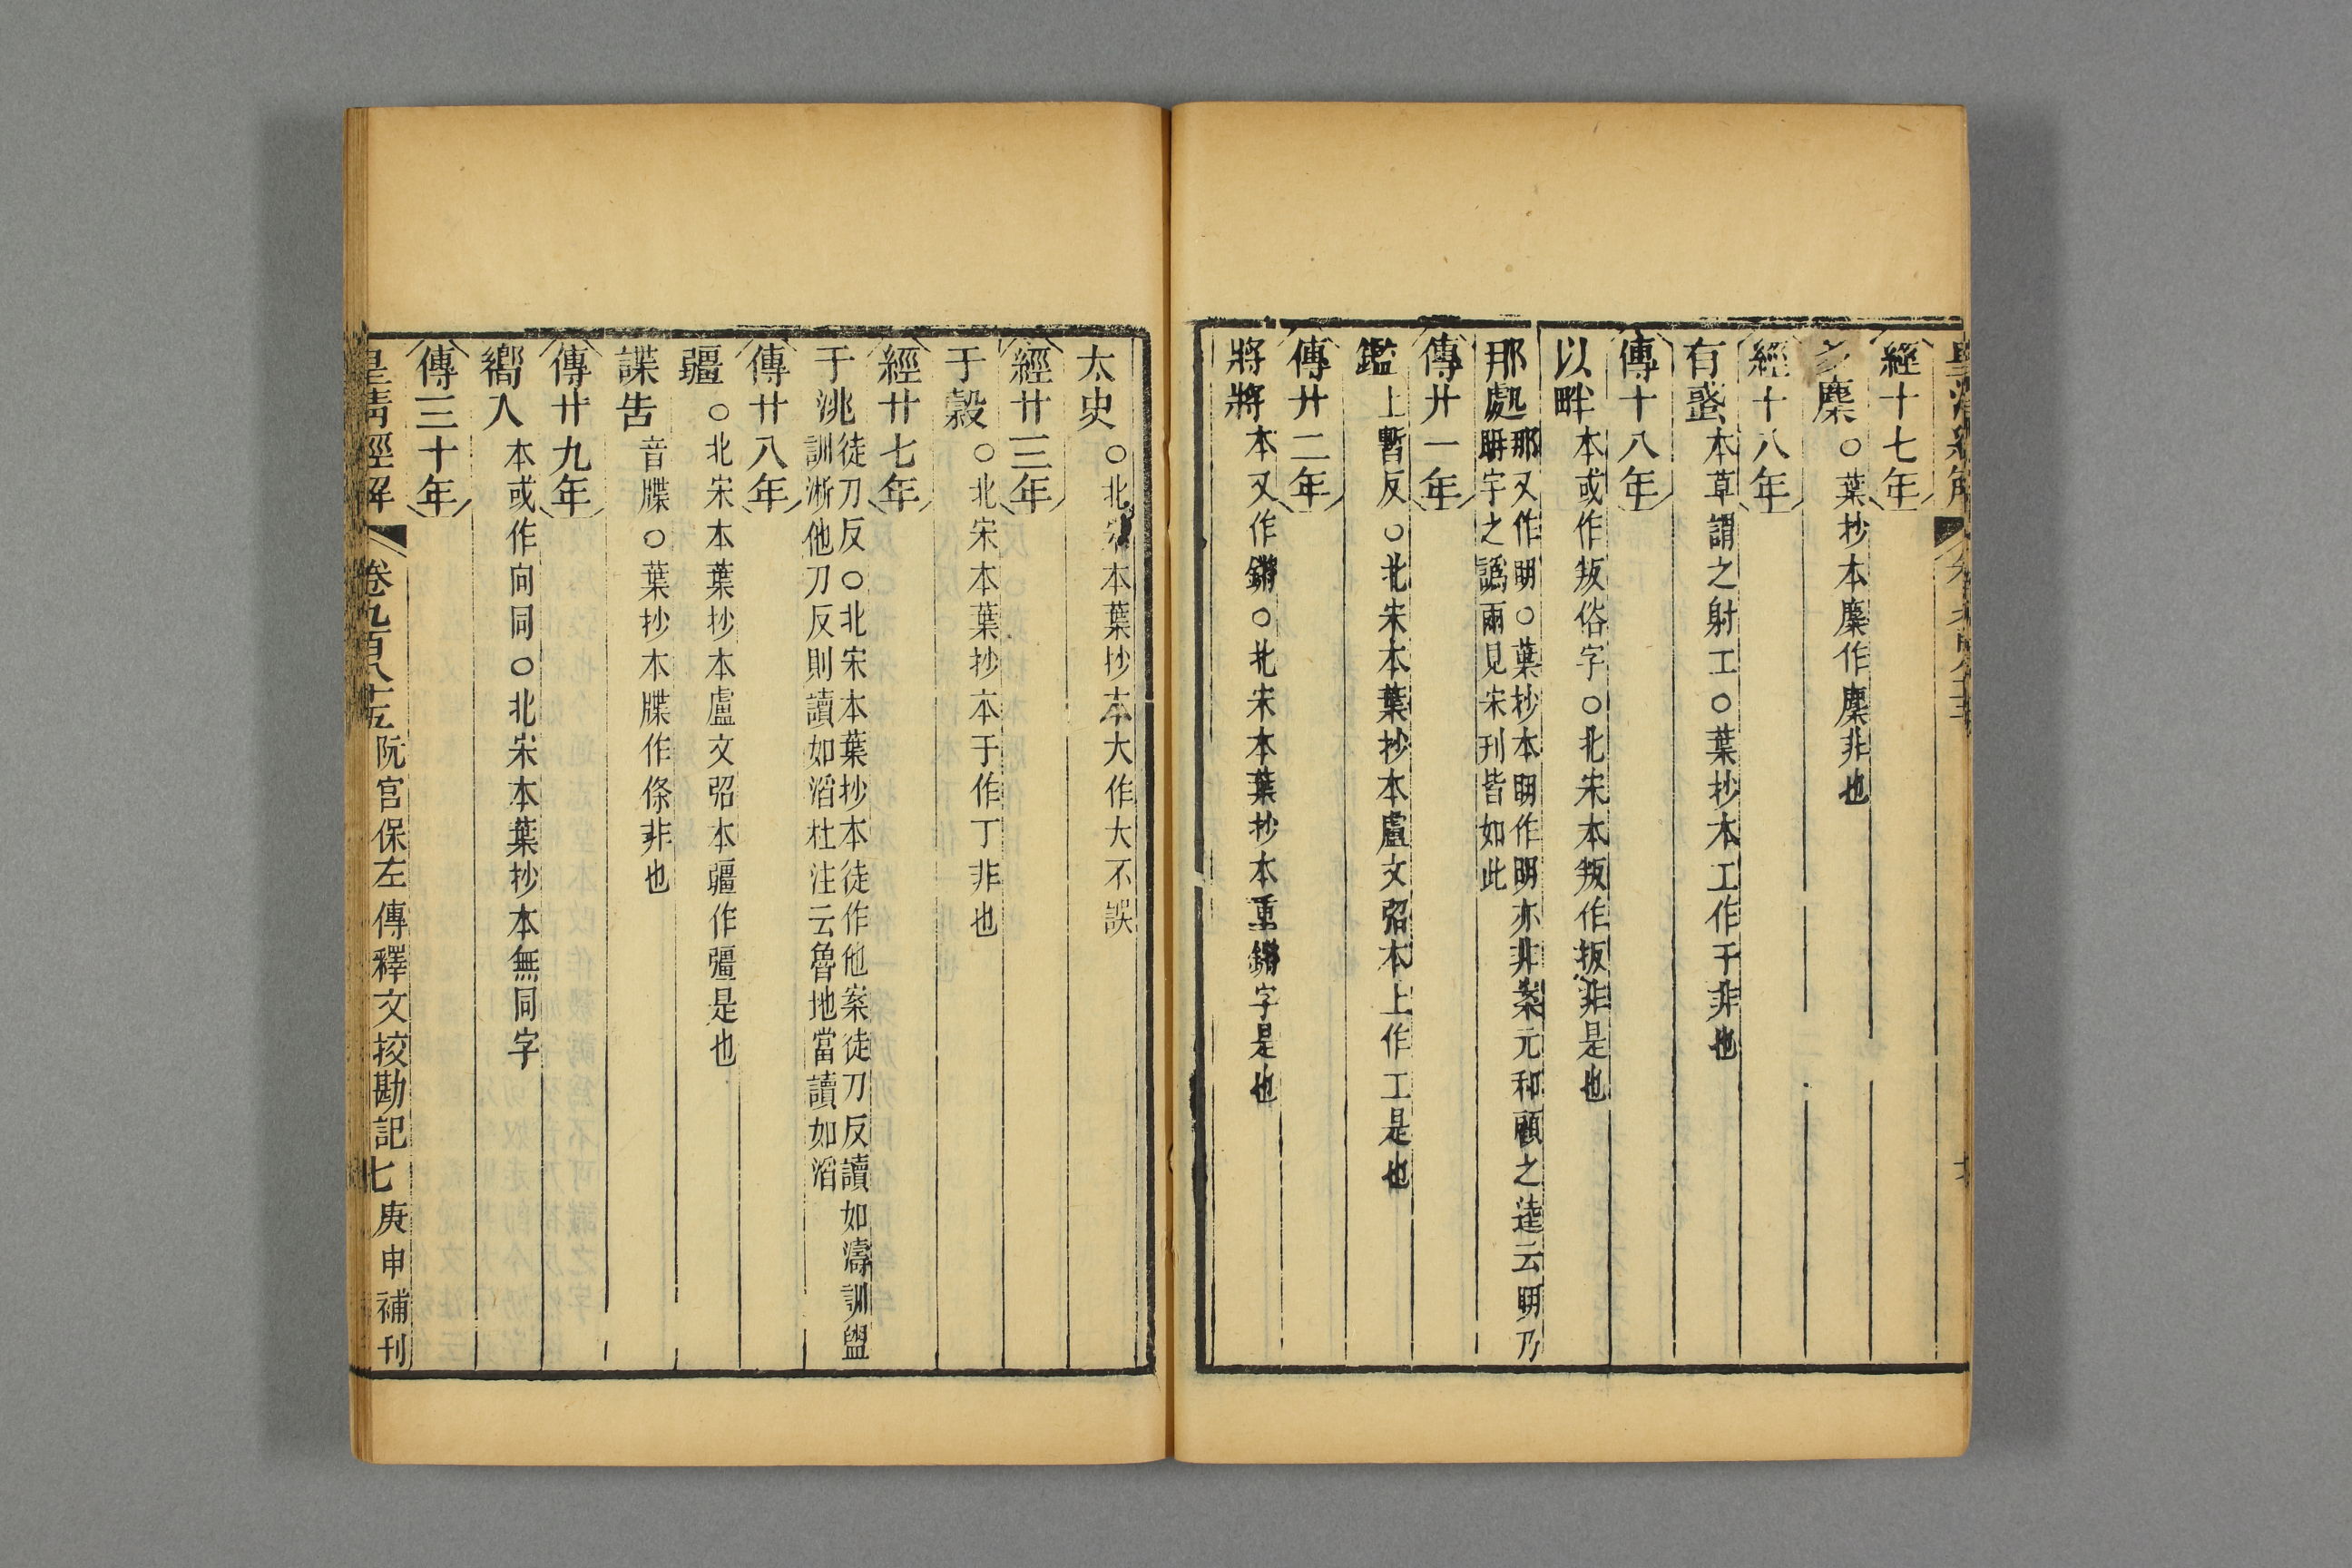 經十七年
多麋○葉抄本麋作麇非也
經十八年
有蜮本草謂之射工○葉抄本工作干非也
傳十八年
以畔本或作叛俗字○北宋本叛作扳非是也
那處那又作䎽○葉抄本䎽作䎽亦非案元和顧之逵云䎽乃
䎽字之譌兩見宋刊皆如此
傳廿一年
鑑上暫反○北宋本葉抄本盧文弨本上作工是也
傳廿二年
將將本又作鏘○北宋本葉抄本重鏘字是也
太史○北宋本葉抄本大作大不誤
經廿三年
于穀○北宋本葉抄本于作丁非也
經廿七年
于洮徒刀反○北宋本葉抄本徒作他案徒刀反讀如濤訓盥
訓淅他刀反則讀如滔杜注云魯地當讀如滔
傳廿八年
疆○北宋本葉抄本盧文弨本疆作彊是也
諜告音牒○葉抄本牒作條非也
傳廿九年
嚮人本或作向同○北宋本葉抄本無同字
傳三十年
皇清經解 卷九百八十五 阮宮保左傳釋文挍勘記 七 庚申補刊